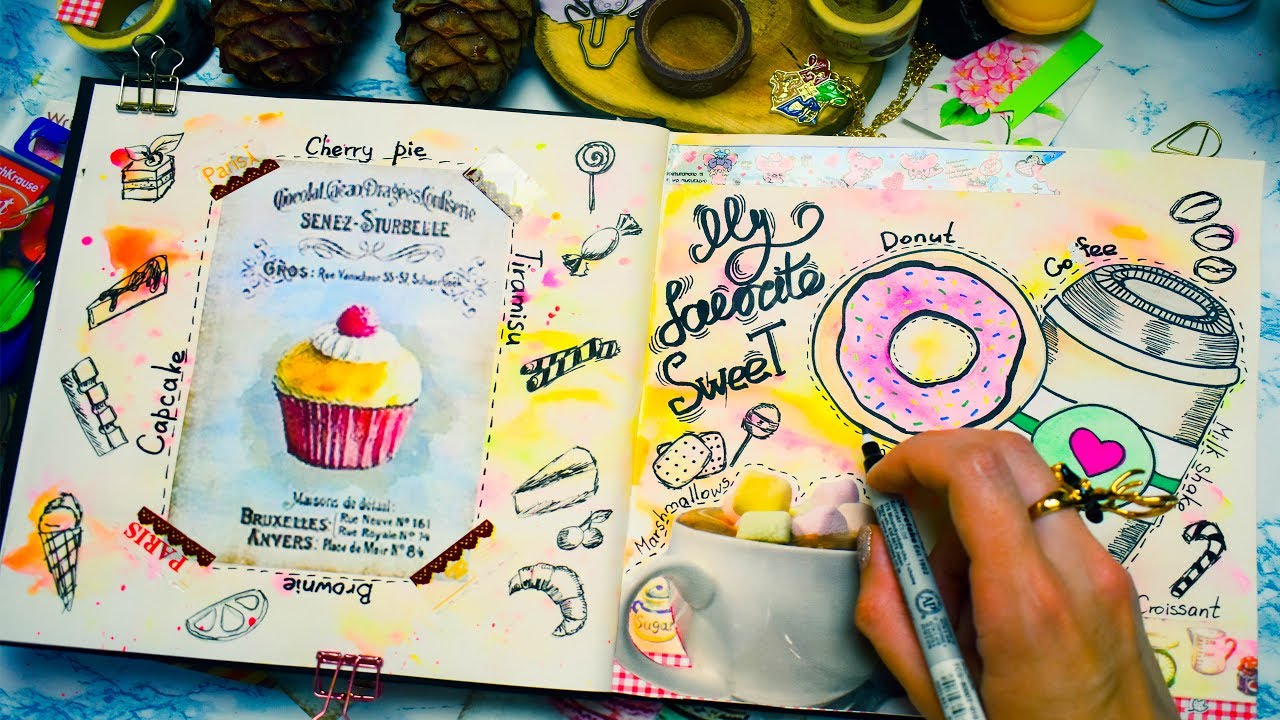 Cherry pie
PARIS
Chocolat, Cacao, Dragées, Confiserie
SENEZ-STURBELLE
GROS:
Tiramisu
Capcake
Maisons de détail:
BRUXELLES: Rue Neuve Nº 161
Rue Royale Nº 14
ANVERS: Place de Meir Nº 84
PARIS
Brownie
My
favorite
Sweet
Donut
Cofee
Milk Shake
Marshmallows
Sugar
Croissant